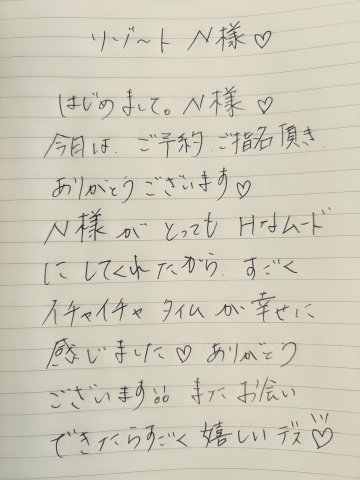 リゾート N様♡
はじめまして。N様♡
今日は、ご予約、ご指名頂き
ありがとうございます♡
N様がとってもHなムード
にしてくれたから、すごく
イチャイチャタイムが幸せに
感じました♡ ありがとう
ございます!! またお会い
できたらすごく嬉しいデス♡